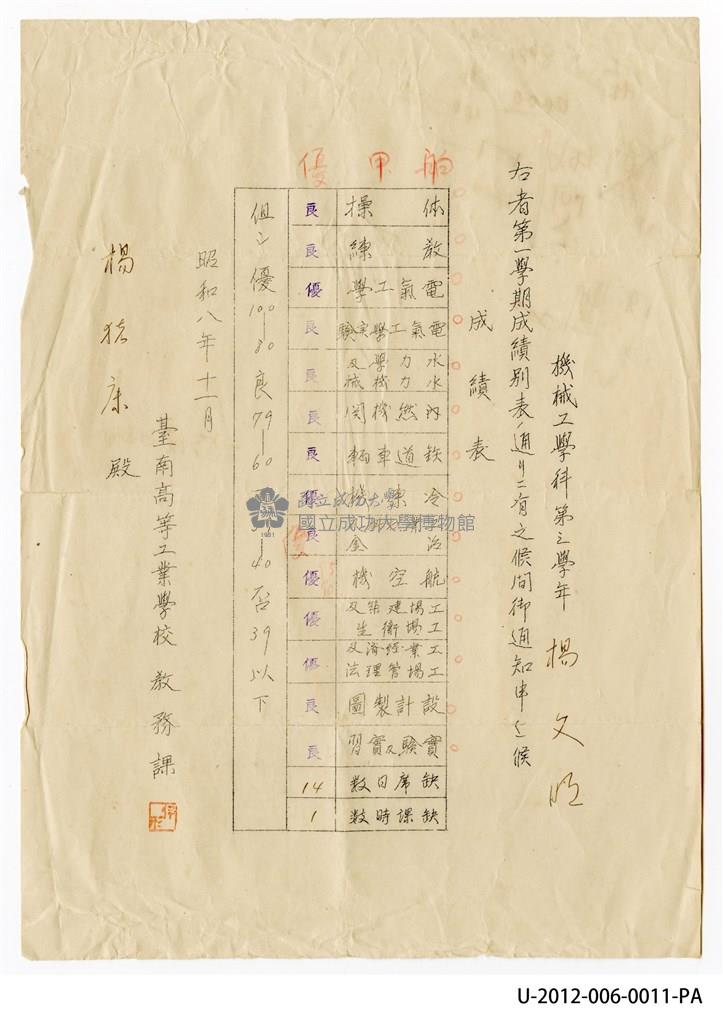 機械工學科第三學年 楊文明
右者第一學期成績別表ノ通リニ有之候間御通知申上候
成績表
舶甲優
体操 良
教練 良
電氣工學 優
電氣工學実驗 良
水力學及水力機械 良
内燃機関 良
鉄道車輌 良
冷凍機 優
冶金 良
航空機 優
工場建築及工場衛生 優
工業経濟及工場管理法 優
設計製圖 良
實驗及實習 良
缺席日数 14
缺課時数 1
但シ優100—80良79—60 —40否39以下
昭和八年十一月
臺南高等工業學校教務課
楊 康殿
國立成功大學
國立成功大學博物館
1931
U-2012-006-0011-PA